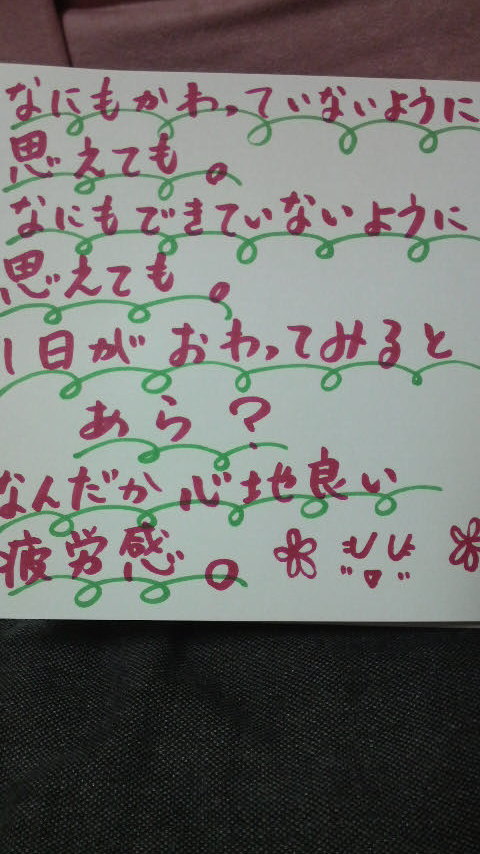 なにもかわっていないように
思えても。
なにもできていないように
思えても。
1日がおわってみると
あら?
なんだか心地良い
疲労感。